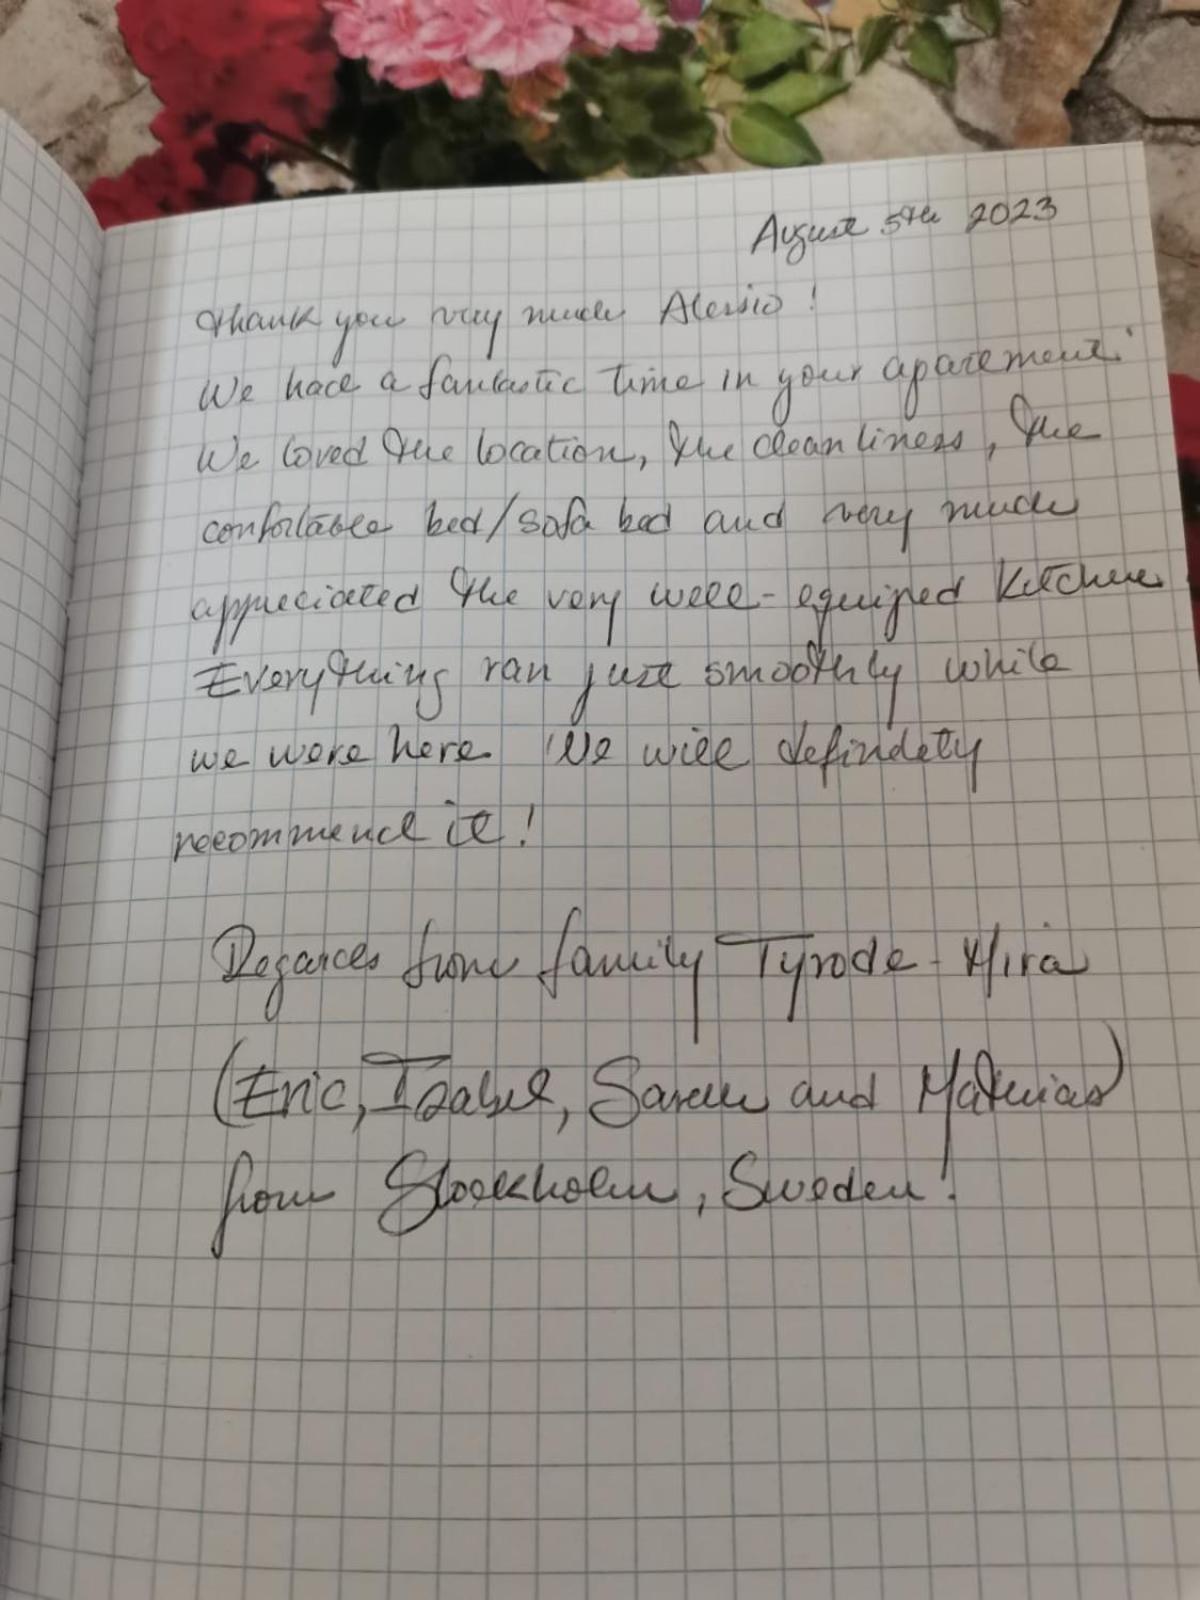 August 5th 2023
Thank you very much Alessio!
We had a fantastic time in your apartment.
We loved the location, the cleanliness, the
confortable bed/sofa bed and very much
appreciated the very well-equiped kitchen
Everything ran just smoothly while
we were here. We will definetely
recommend it!
Regards from family Tyrode-Mira
(Eric, Izabel, Sarah and Mathias)
from Stockholm, Sweden!